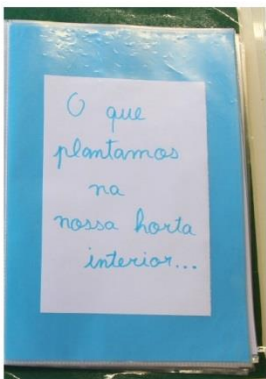 O que
plantamos
na
nossa horta
interior...